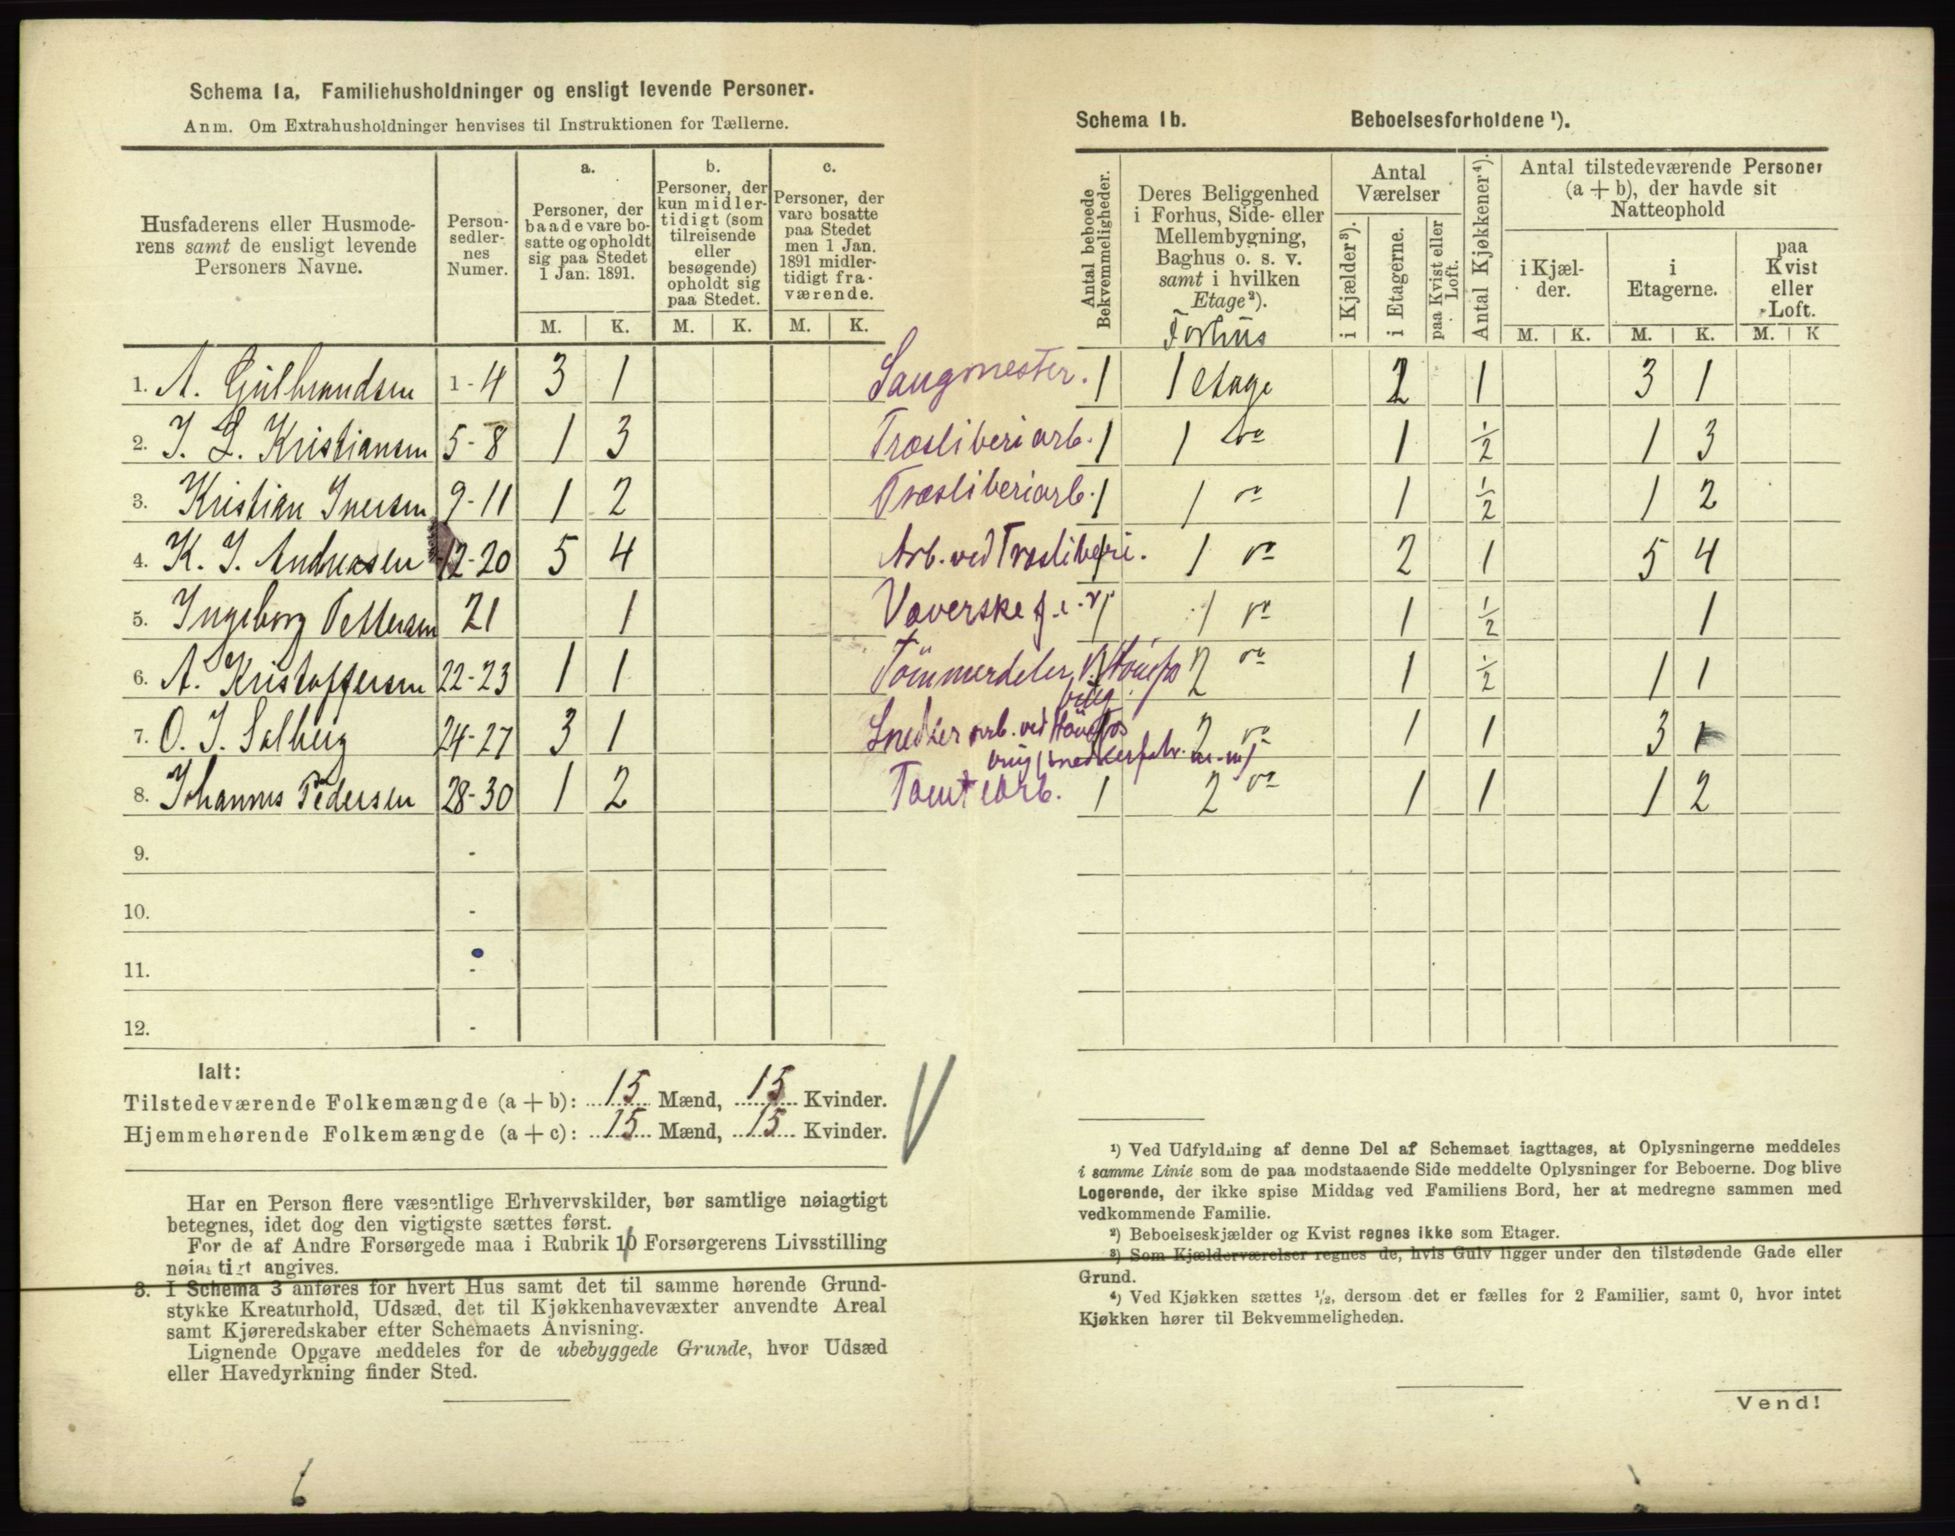 Schema 1a, Familiehusholdninger og ensligt levende Personer.
Anm. Om Extrahusholdninger henvises til Instruktionen for Tællerne.
Husfaderens eller Husmode-
rens samt de ensligt levende
Personers Navne.
Person-
sedler-
nes
Numer.
a.
Personer, der
baade vare bo-
satte og opholdt
sig paa Stedet
1 Jan. 1891.
b.
Personer, der
kun midler-
tidigt (som
tilreisende
eller
besøgende)
opholdt sig
paa Stedet.
c.
Personer, der
vare bosatte
paa Stedet
men 1 Jan.
1891 midler-
tidigt fra-
værende.
M. K. M. K. M. K.
1. A. Gulbrandsen 1-4 3 1
2. J. L. Kristiansen 5-8 1 3
3. Kristian Iversen 9-11 1 2
4. K. J. Andreasen 12-20 5 4
5. Ingeborg Pettersen 21 1
6. A. Kristoffersen 22-23 1 1
7. O. J. Solberg 24-27 3 1
8. Johannes Pedersen 28-30 1 2
9. -
10. -
11. -
12. -
Ialt:
Tilstedeværende Folkemængde (a + b): 15 Mænd, 15 Kvinder.
Hjemmehørende Folkemængde (a + c): 15 Mænd, 15 Kvinder.
Har en Person flere væsentlige Erhvervskilder, bør samtlige nøiagtigt
betegnes, idet dog den vigtigste sættes først.
For de af Andre Forsørgede maa i Rubrik 10 Forsørgerens Livsstilling
nøiagtigt angives.
3. I Schema 3 anføres for hvert Hus samt det til samme hørende Grund-
stykke Kreaturhold, Udsæd, det til Kjøkkenhavevæxter anvendte Areal
samt Kjøreredskaber efter Schemaets Anvisning.
Lignende Opgave meddeles for de ubebyggede Grunde, hvor Udsæd
eller Havedyrkning finder Sted.
6
Schema 1b. Beboelsesforholdene ¹).
Antal beboede
Bekvemmeligheder.
Deres Beliggenhed
i Forhus, Side- eller
Mellembygning,
Baghus o. s. v.
samt i hvilken
Etage²).
Forhus
Antal
Værelser
i Kjælder³).
i Etagerne.
paa Kvist eller
Loft.
Antal Kjøkkener⁴).
Antal tilstedeværende Personer
(a + b), der havde sit
Natteophold
i Kjæl-
der.
i
Etagerne.
paa
Kvist
eller
Loft.
M. K. M. K. M. K
Saugmester. 1 1 etage 2 1 3 1
Træsliberiarb. 1 1 do 1 ½ 1 3
Træsliberiarb. 1 1 do 1 ½ 1 2
Arb. ved Træsliberi. 1 1 do 2 1 5 4
Væverske f. e. r. 1 1 do 1 ½ 1
Tømmerdeler 2 do 1 ½ 1 1
brug
Snedker arb. ved Hønefos 2 do 1 1 3 1
brug snedkerfabr. m.m.
Tomtearb. 1 2 do 1 1 1 2
¹) Ved Udfyldning af denne Del af Schemaet iagttages, at Oplysningerne meddeles
i samme Linie som de paa modstaaende Side meddelte Oplysninger for Beboerne. Dog blive
Logerende, der ikke spise Middag ved Familiens Bord, her at medregne sammen med
vedkommende Familie.
²) Beboelseskjælder og Kvist regnes ikke som Etager.
³) Som Kjælderværelser regnes de, hvis Gulv ligger under den tilstødende Gade eller
Grund.
⁴) Ved Kjøkken sættes ½, dersom det er fælles for 2 Familier, samt 0, hvor intet
Kjøkken hører til Bekvemmeligheden.
Vend!